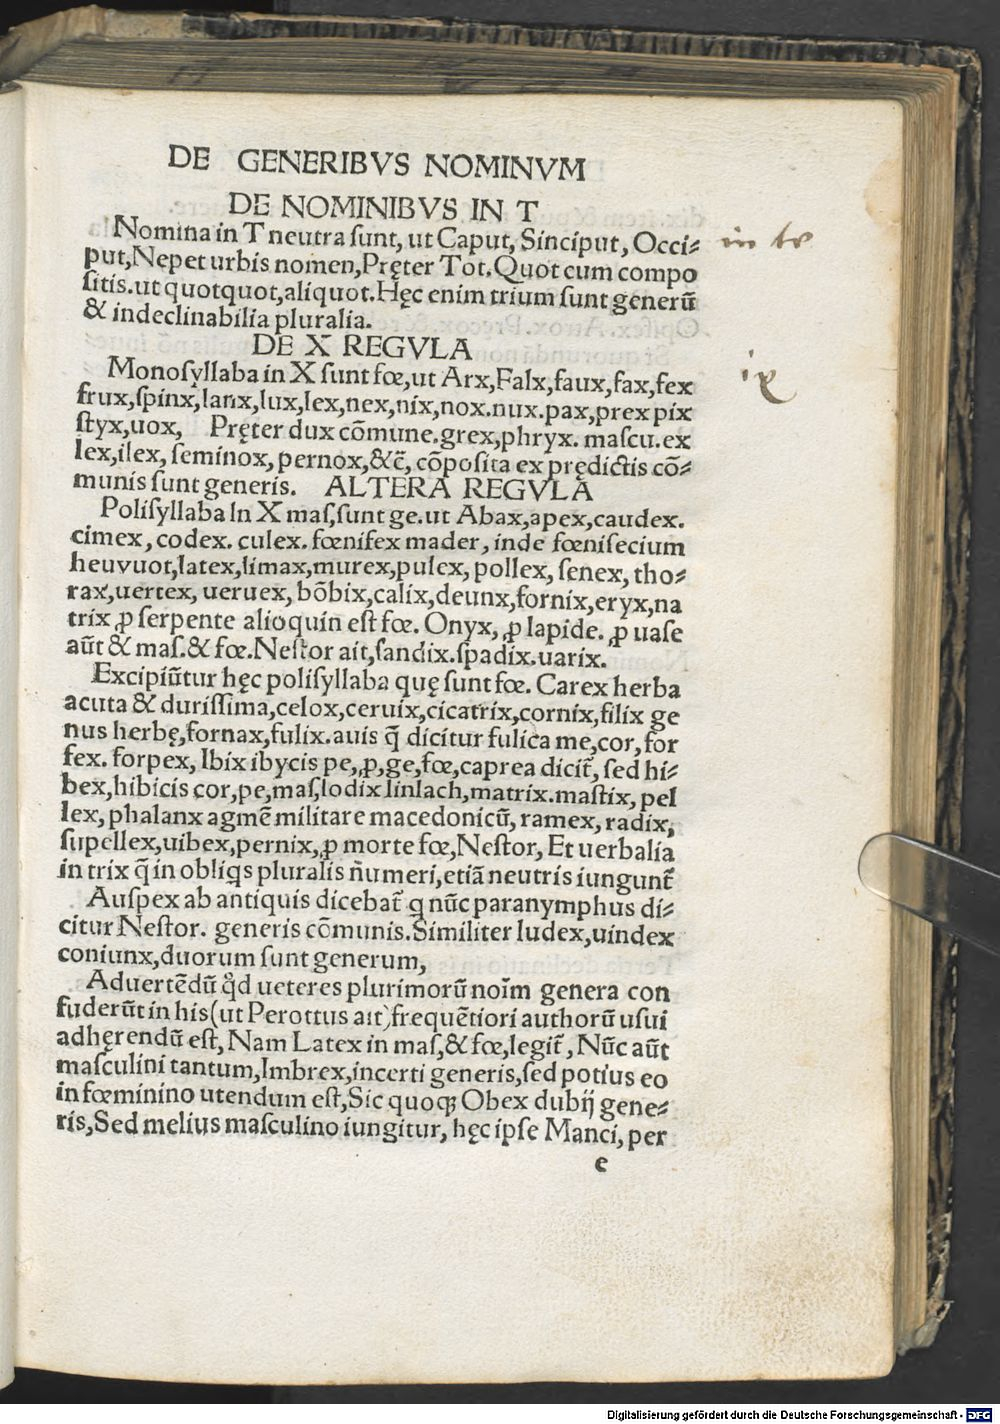 DE GENERIBVS NOMINVM
DE NOMINIBVS IN T
Nomina in T neutra ſunt, ut Caput, Sinciput, Occi⸗
put, Nepet urbis nomen, Pręter Tot. Quot cum compo
ſitis. ut quotquot, aliquot. Hęc enim trium ſunt generū
& indeclinabilia pluralia.
DE X REGVLA
Monoſyllaba in X ſunt fœ, ut Arx, Falx, faux, fax, fex
frux, ſpinx, lanx, lux, lex, nex, nix, nox. nux. pax, prex pix
ſtyx, uox, Pręter dux cōmune. grex, phryx. maſcu. ex
lex, ilex, ſeminox, pernox, &c̄, cōpoſita ex prędictis cō⸗
munis ſunt generis. ALTERA REGVLA
Poliſyllaba In X maſ, ſunt ge. ut Abax, apex, caudex.
cimex, codex. culex. fœnifex mader, inde fœniſecium
heuvuot, latex, limax, murex, pulex, pollex, ſenex, tho⸗
rax, uertex, ueruex, bōbix, calix, deunx, fornix, eryx, na
trix ꝓ ſerpente alioquin eſt fœ. Onyx, ꝓ lapide. ꝓ uaſe
aūt & maſ. & fœ. Neſtor ait, ſandix. ſpadix. uarix.
Excipiūtur hęc poliſyllaba quę ſunt fœ. Carex herba
acuta & duriſſima, celox, ceruix, cicatrix, cornix, filix ge
nus herbę, fornax, fulix. auis q̄ dicitur fulica me, cor, for
fex. forpex, Ibix ibycis pe, ꝓ, ge, fœ, caprea dicit̃, ſed hi⸗
bex, hibicis cor, pe, maſ, lodix linlach, matrix. maſtix, pel
lex, phalanx agmē militare macedonicū, ramex, radix,
ſupellex, uibex, pernix, ꝓ morte fœ, Neſtor, Et uerbalia
in trix q̄ in obliqs pluralis ñumeri, etiā neutris iungunt̃
Auſpex ab antiquis dicebat̃ q nūc paranymphus di⸗
citur Neſtor. generis cōmunis. Similiter Iudex, uindex
coniunx, duorum ſunt generum,
Aduertēdū qd ueteres plurimorū noīm genera con
fuderūt in his (ut Perottus ait) frequētiori authorū uſui
adhęrendū eſt, Nam Latex in maſ, & fœ, legit̃, Nūc aūt
maſculini tantum, Imbrex, incerti generis, ſed potius eo
in fœminino utendum eſt, Sic quoqꝫ Obex dubij gene⸗
ris, Sed melius maſculino iungitur, hęc ipſe Manci, per
e
in te
ix
Digitalisierung gefördert durch die Deutsche Forschungsgemeinschaft - DFG